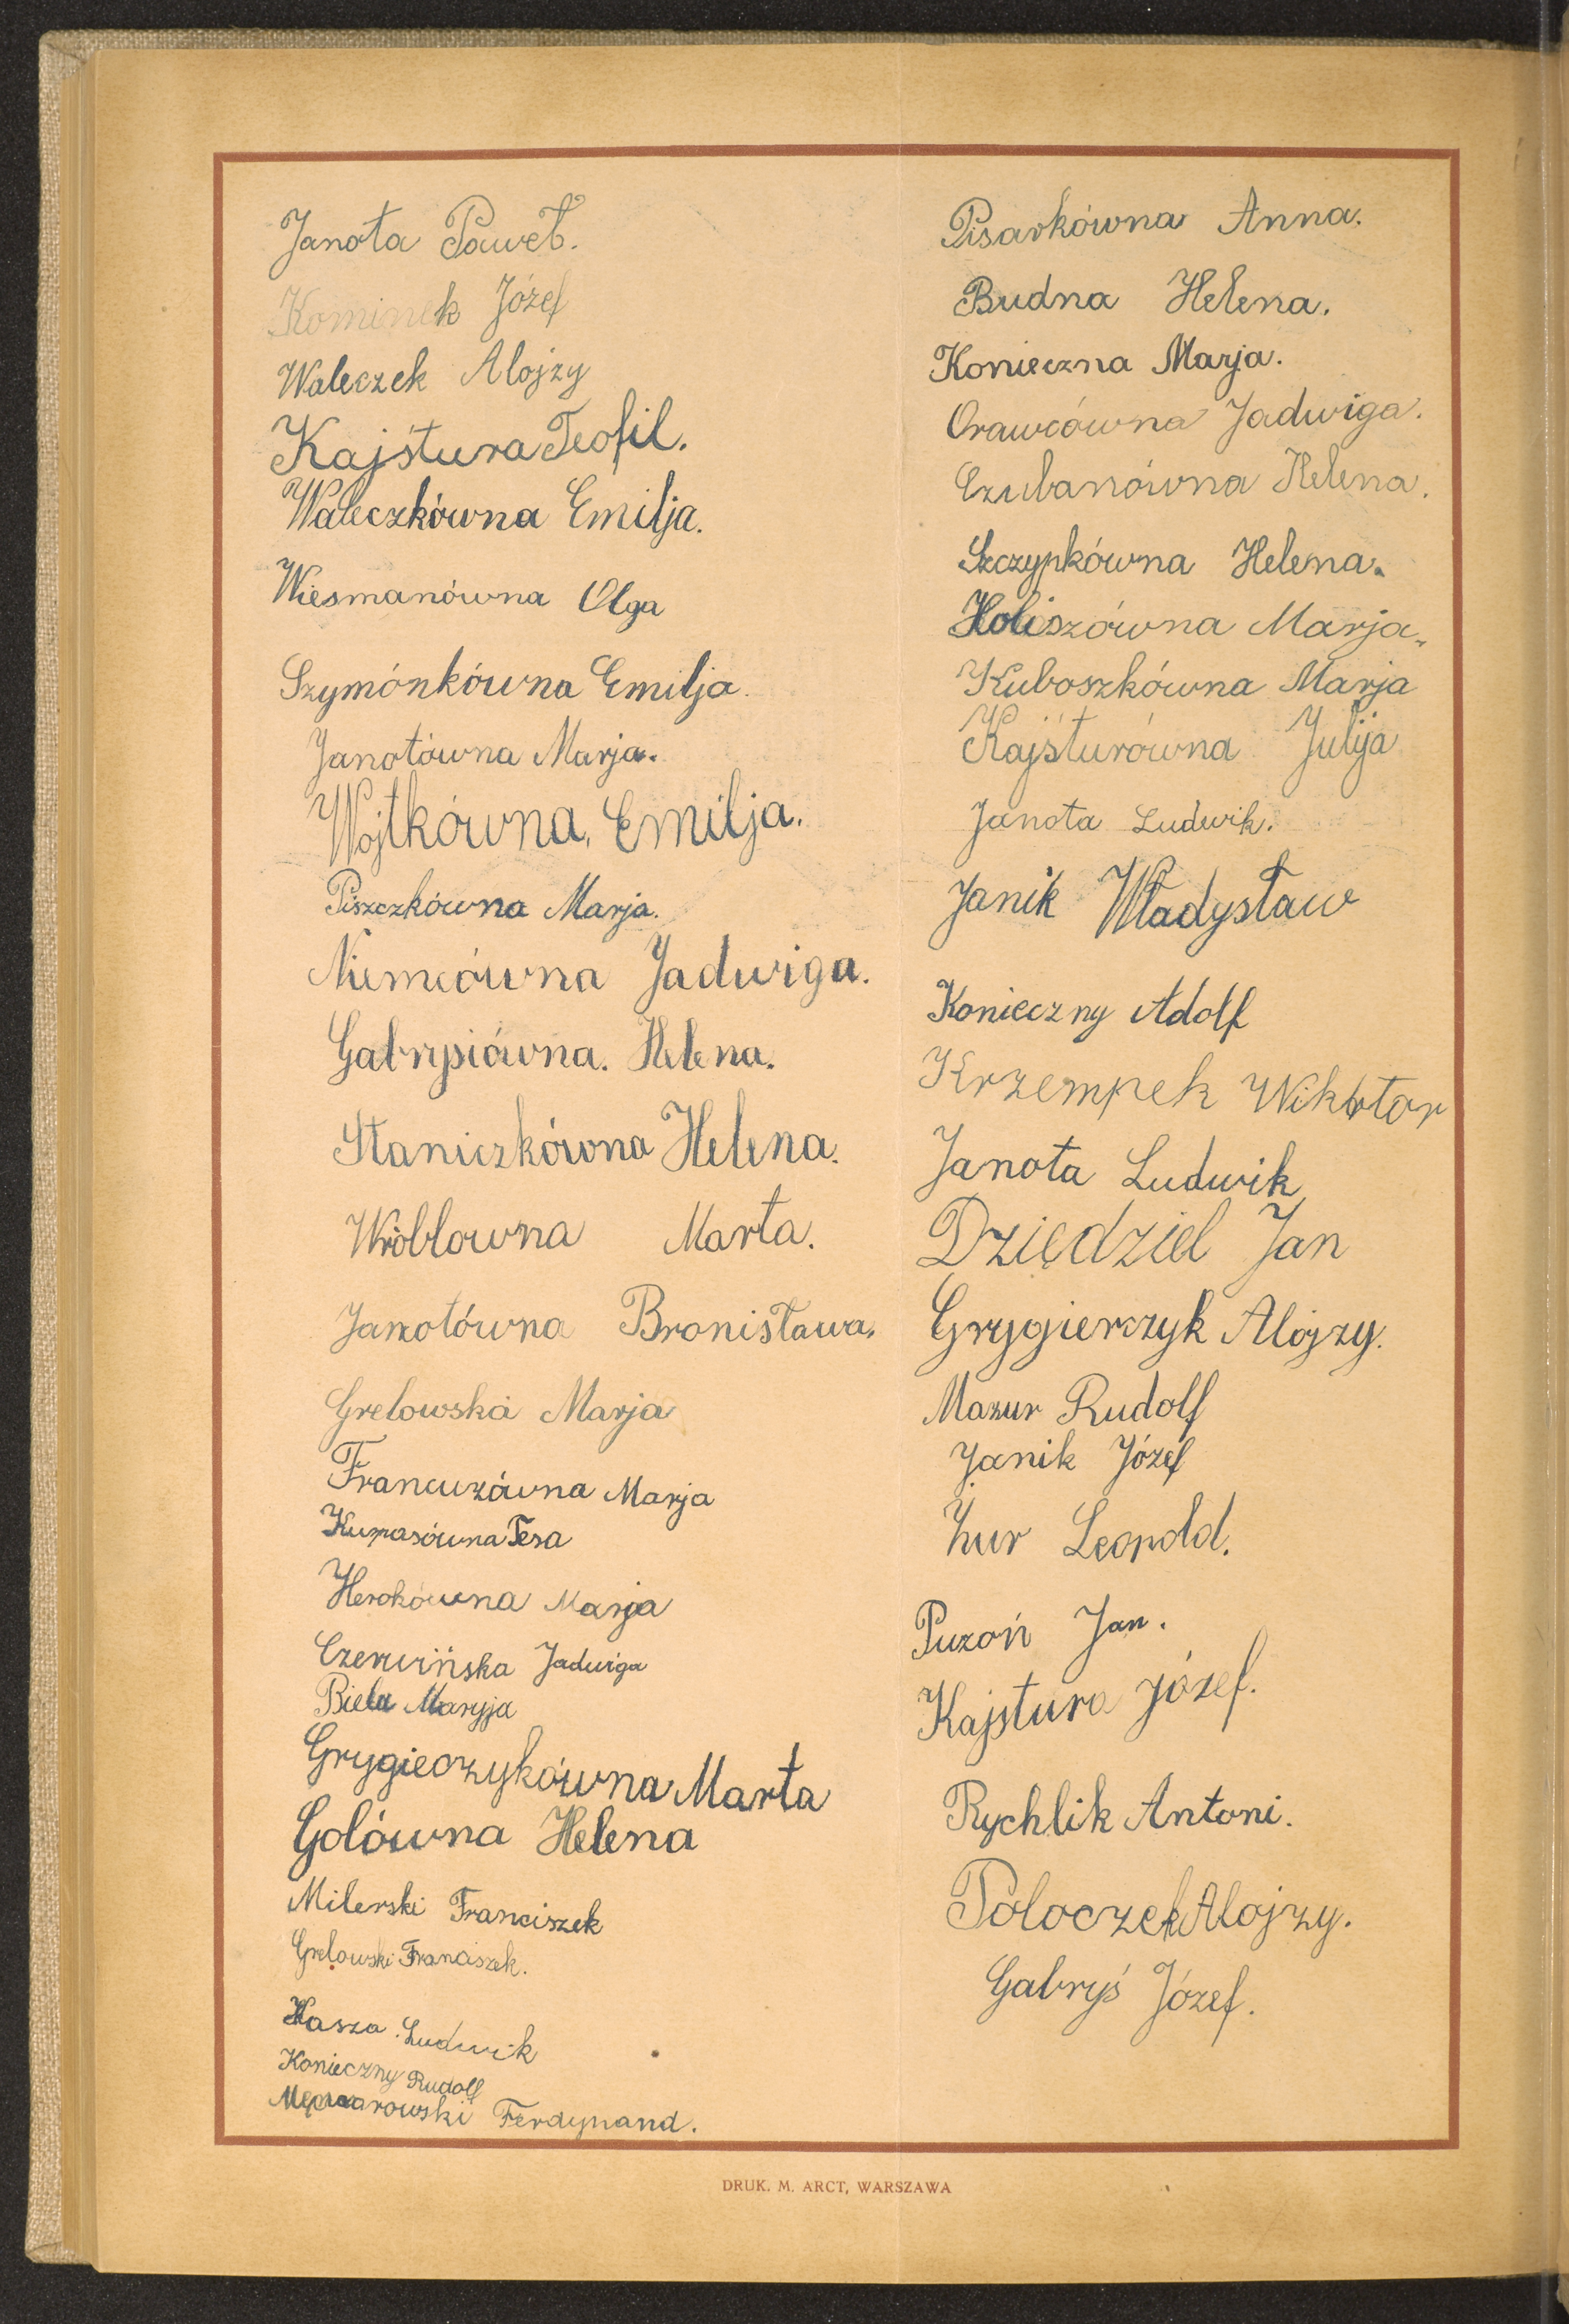 Janota Paweł.
Kominek Józef
Waleczek Alojzy
Kajśtura Teofil.
Waleczkówna Emilja.
Wiesmanówna Olga
Szymónkówna Emilja.
Janotówna Marja.
Wojtkówna, Emilja.
Piszczkówna Marja.
Niemcówna Jadwiga.
Gabrysiówna. Helena.
Staniczkówna Helena.
Wróblowna Marta.
Janotówna Bronisława.
Grelowska Marja
Francuzówna Marja
Kumasówna Tesa
Herokówna Marja
Czerwińska Jadwiga
Biela Maryja
Grygieczykówna Marta
Golówna Helena
Milerski Franciszek
Grelowski Franciszek.
Kasza Ludwik
Konieczny Rudolf
Ferdynand.
Pisarkówna Anna.
Budna Helena.
Konieczna Marja.
Orawcówna Jadwiga.
Czubanówna Helena.
Szczypkówna Helena.
Holiszówna Marja.
Kuboszkówna Marja
Kajśturówna Julija
Janota Ludwik.
Janik Władysław
Konieczny Adolf
Krzempek Wiktor
Janota Ludwik
Dziędziel Jan
Grygierczyk Alojzy.
Mazur Rudolf
Janik Józef
Żur Leopold.
Puzoń Jan.
Kajstura Józef.
Rychlik Antoni.
Poloczek Alojzy.
Gabryś Józef.
DRUK. M. ARCT, WARSZAWA